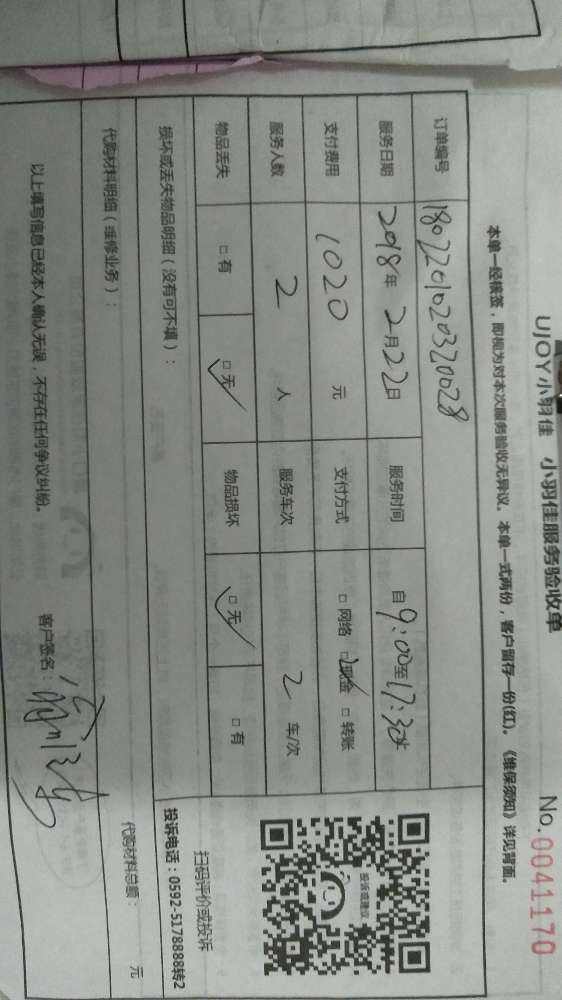 UJOY小羽佳 小羽佳服务验收单 No.0041170
本单一经核签，即视为对本次服务验收无异议。本单一式两份，客户留存一份(红)。《维保须知》详见背面。
订单编号 1802201020320028
服务日期 2018年2月22日 服务时间 自9:00至17:30
支付费用 1020 元 支付方式 □网络 □现金 □转账
服务人数 2 人 服务车次 2 车/次
物品丢失 □有 □无 物品损坏 □无 □有
投诉或建议
扫码评价或投诉
投诉电话：0592-5178888转2
损坏或丢失物品明细（没有可不填）：
代购材料明细（维修业务）： 代购材料总额： 元
以上填写信息已经本人确认无误，不存在任何争议纠纷。 客户签名：